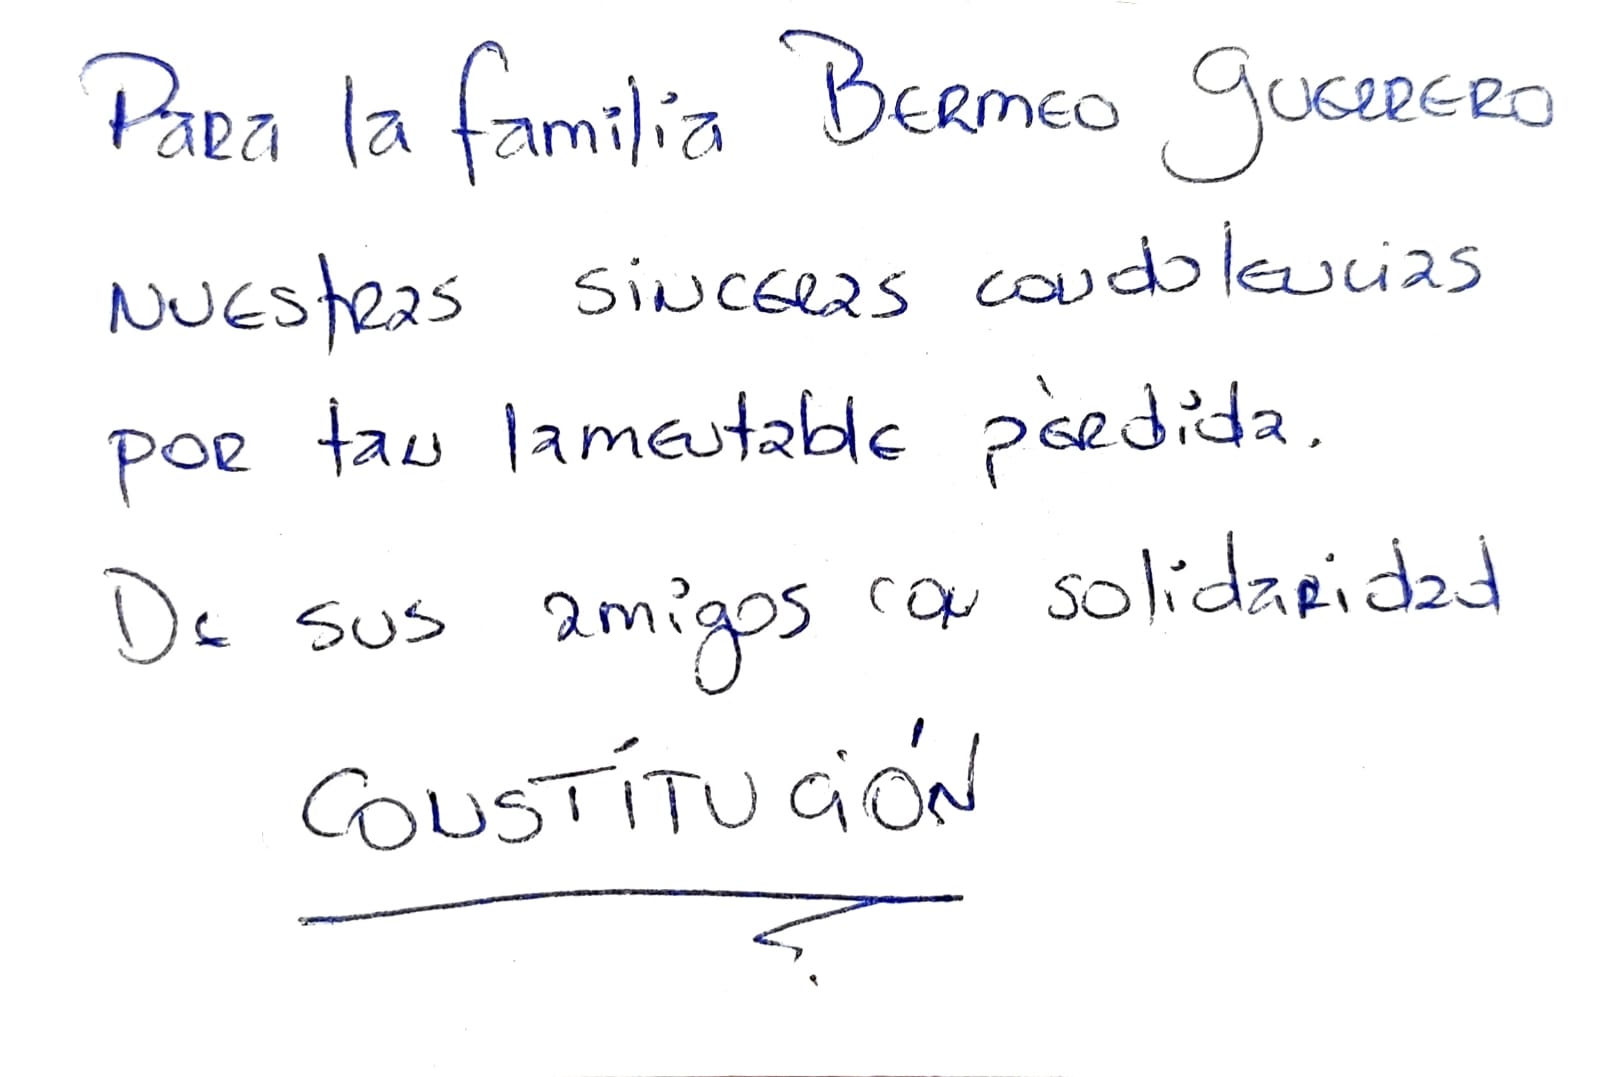 Para la familia BERMEO GUERRERO
NUEStRas SiNCERas condolencias
poR tan lamentable pèRdida.
De sus amigos con solidaRidad
CONSTÍTUCIÓN